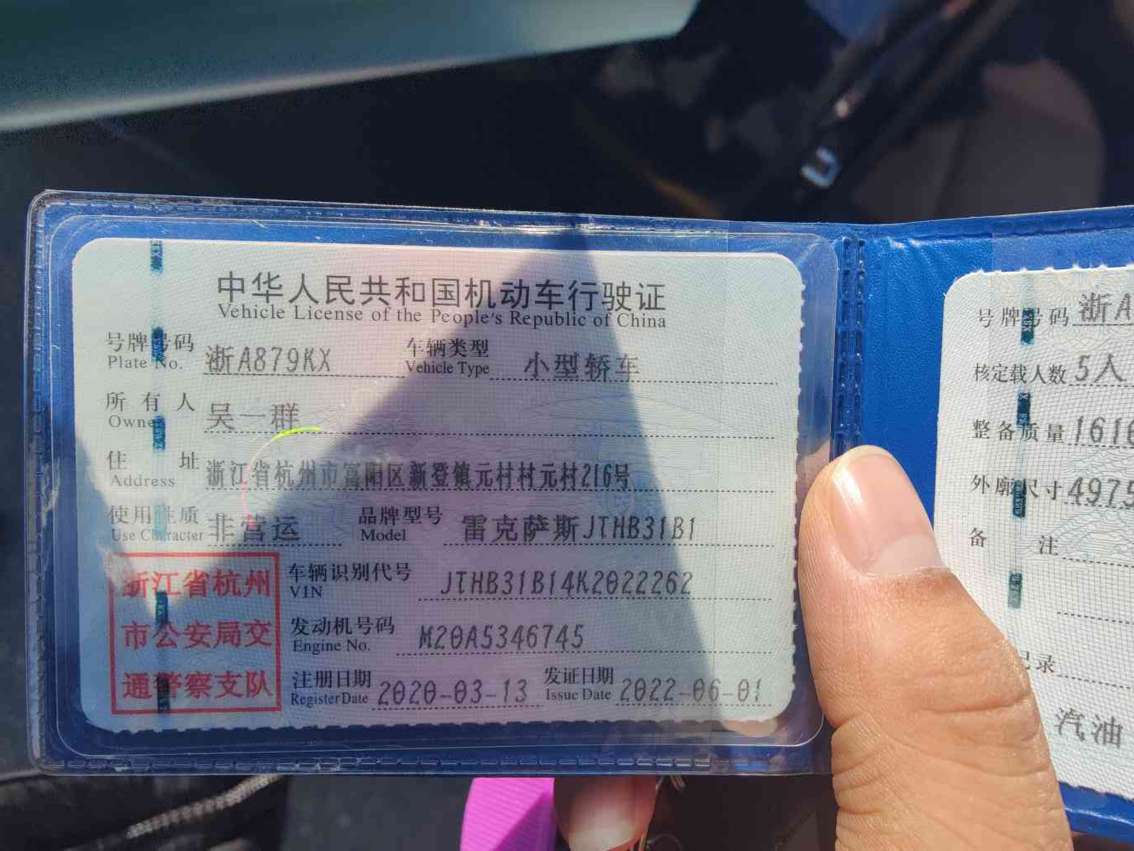 中华人民共和国机动车行驶证
Vehicle License of the People's Republic of China
号牌号码 浙A879KX 车辆类型 小型轿车
Plate No. Vehicle Type
所有人 吴一群
Owner
住址 浙江省杭州市富阳区新登镇元村村元村216号
Address
使用性质 非营运 品牌型号 雷克萨斯JTHB31B1
Use Character Model
浙江省杭州
市公安局交
通警察支队
车辆识别代号 JTHB31B14K2022262
VIN
发动机号码 M20A5346745
Engine No.
注册日期 2020-03-13 发证日期 2022-06-01
Register Date Issue Date
号牌号码 浙A
核定载人数 5人
整备质量 1616
外廓尺寸 4975
备注
记录
汽油